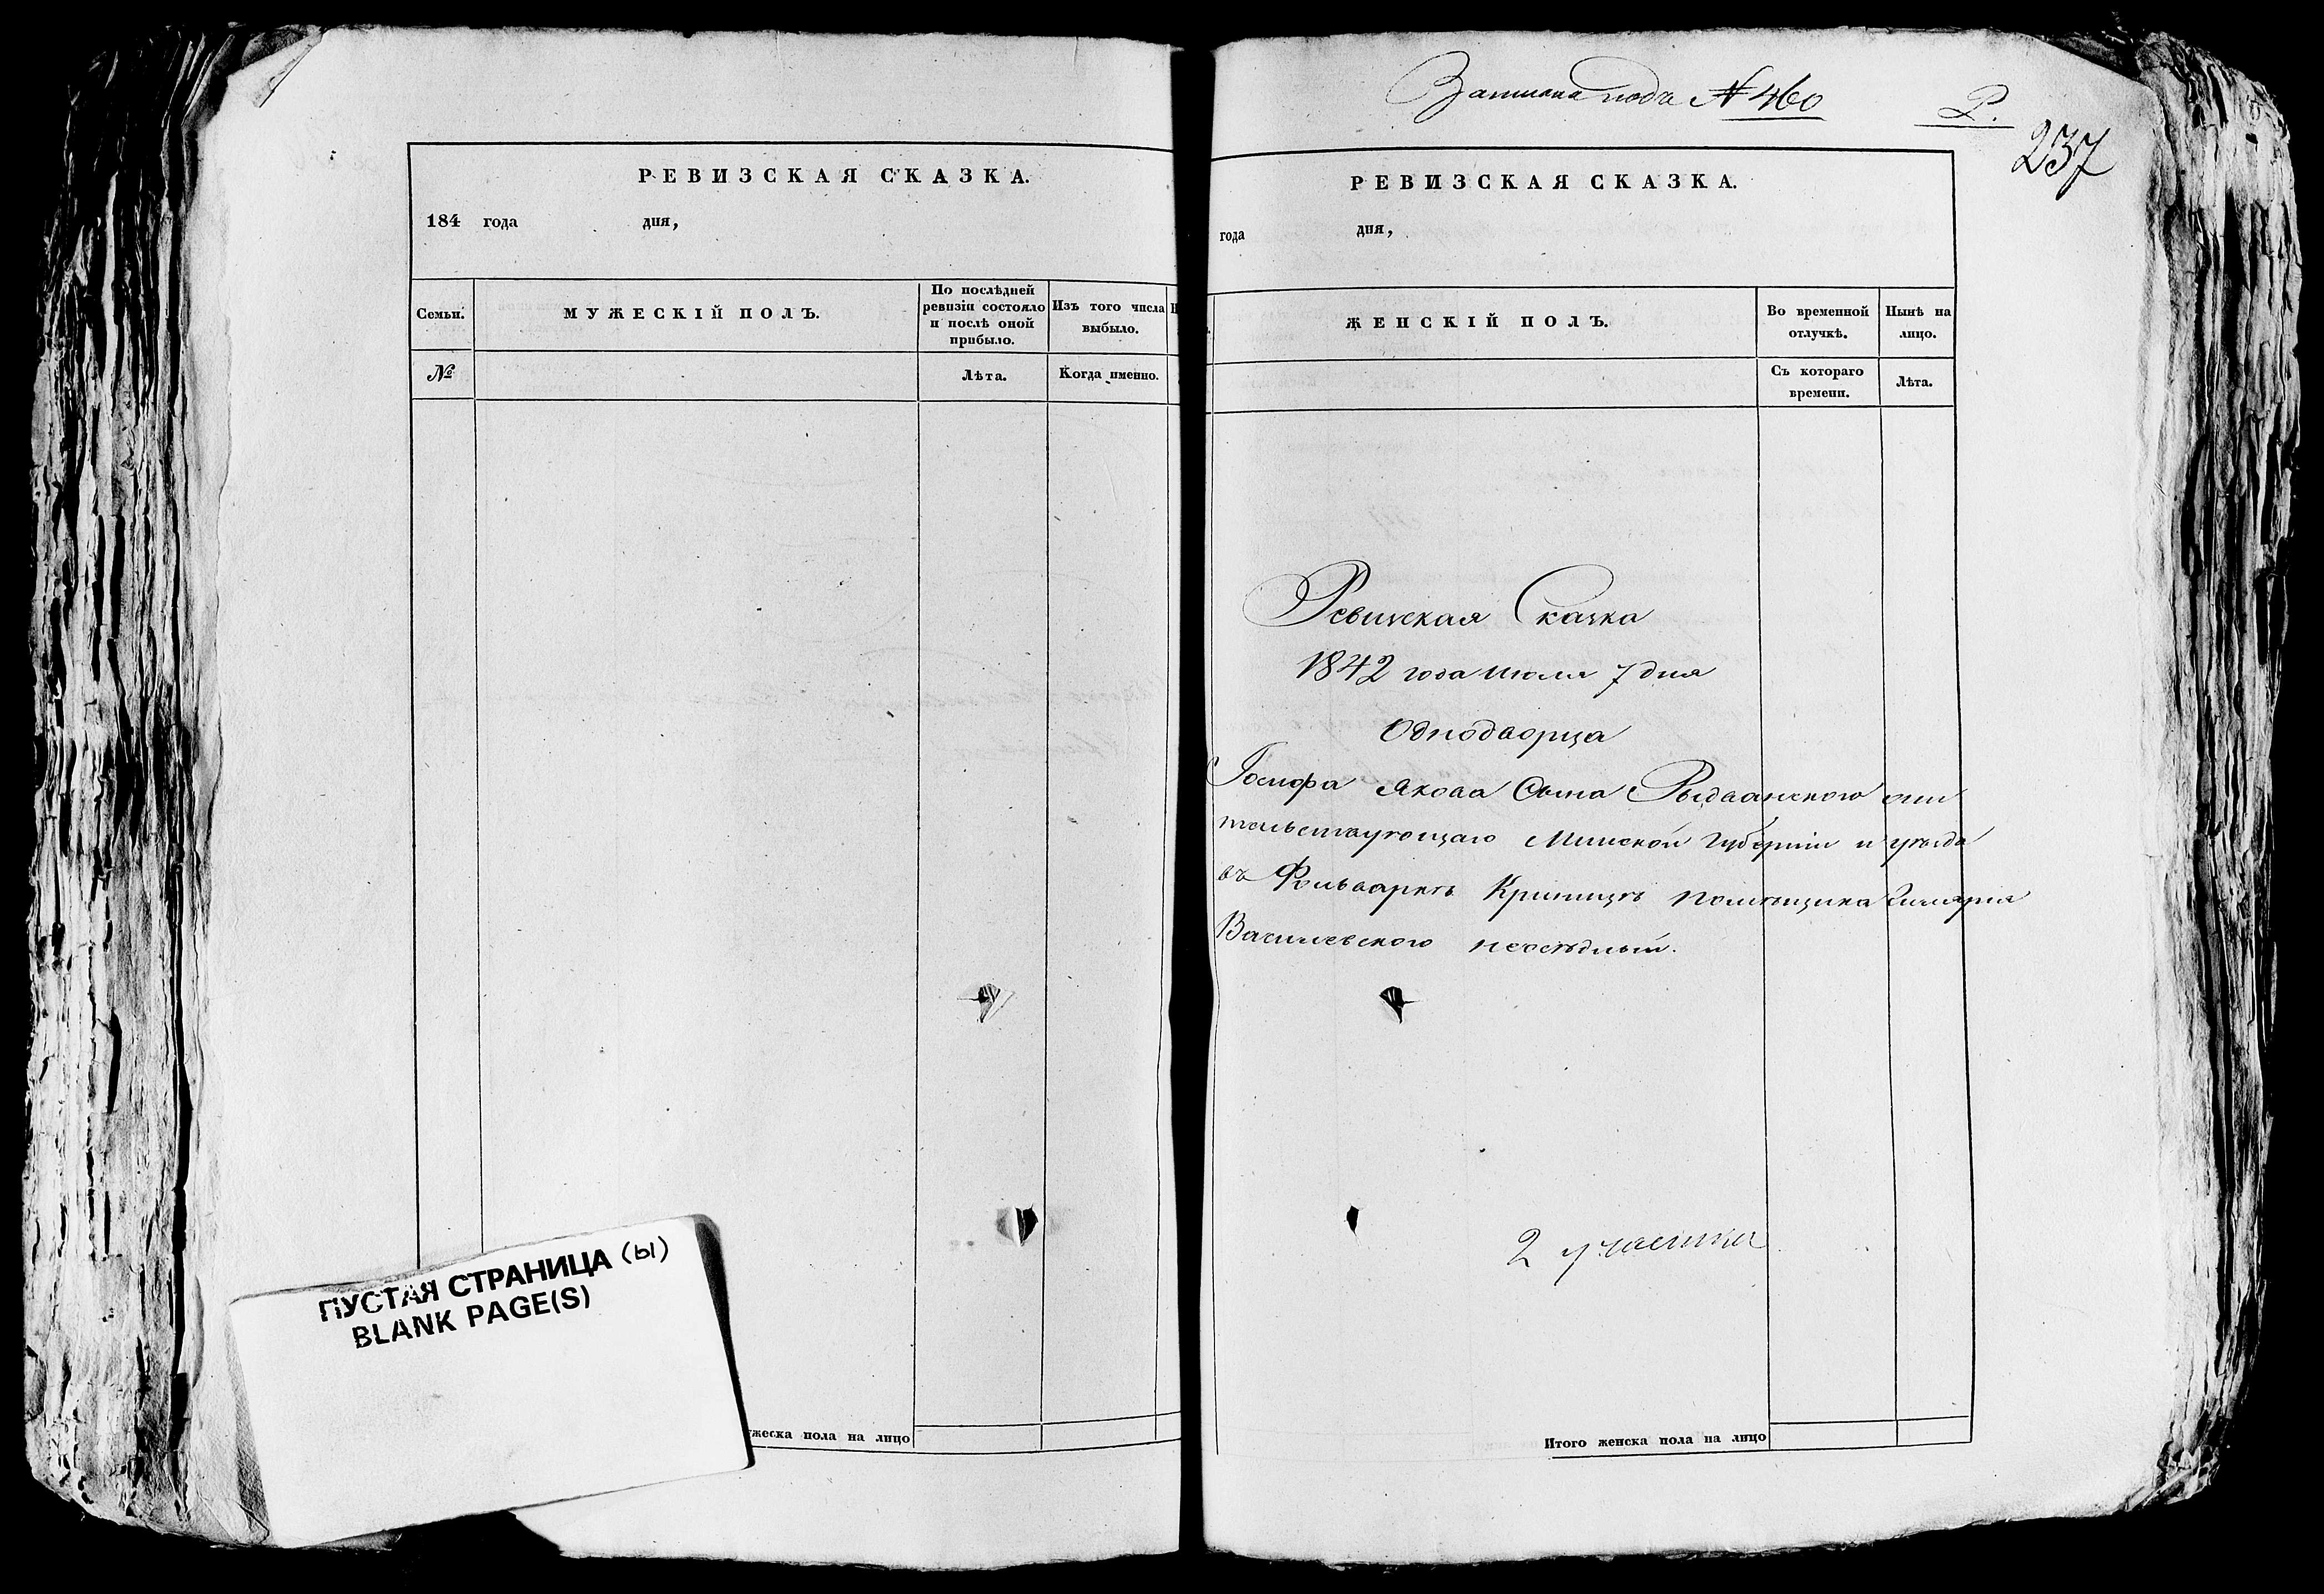 РЕВИЗСКАЯ СКАЗКА.
184 года дня,
Семьи.
МУЖЕСКІЙ ПОЛЪ.
По послѣдней
ревизіи состояло
и послѣ оной
прибыло.
Изъ того числа
выбыло.
№
Лѣта.
Когда именно.
ПУСТАЯ СТРАНИЦА (Ы)
BLANK PAGE(S)
жеска пола на лицо
Записана подъ № 460
Р.
237
РЕВИЗСКАЯ СКАЗКА.
года дня,
ЖЕНСКІЙ ПОЛЪ.
Во временной
отлучкѣ.
Нынѣ на
лицо.
Съ котораго
времени.
Лѣта.
Ревизская Сказка
1842 года июля 7 дня
Однодворца
Іосифа Якова Сына
тельствующаго Минской Губерніи и уѣзда
въ Фольваркѣ Криницѣ помѣщика
Василевского неосѣдлый.
2 участка
Итого женска пола на лицо